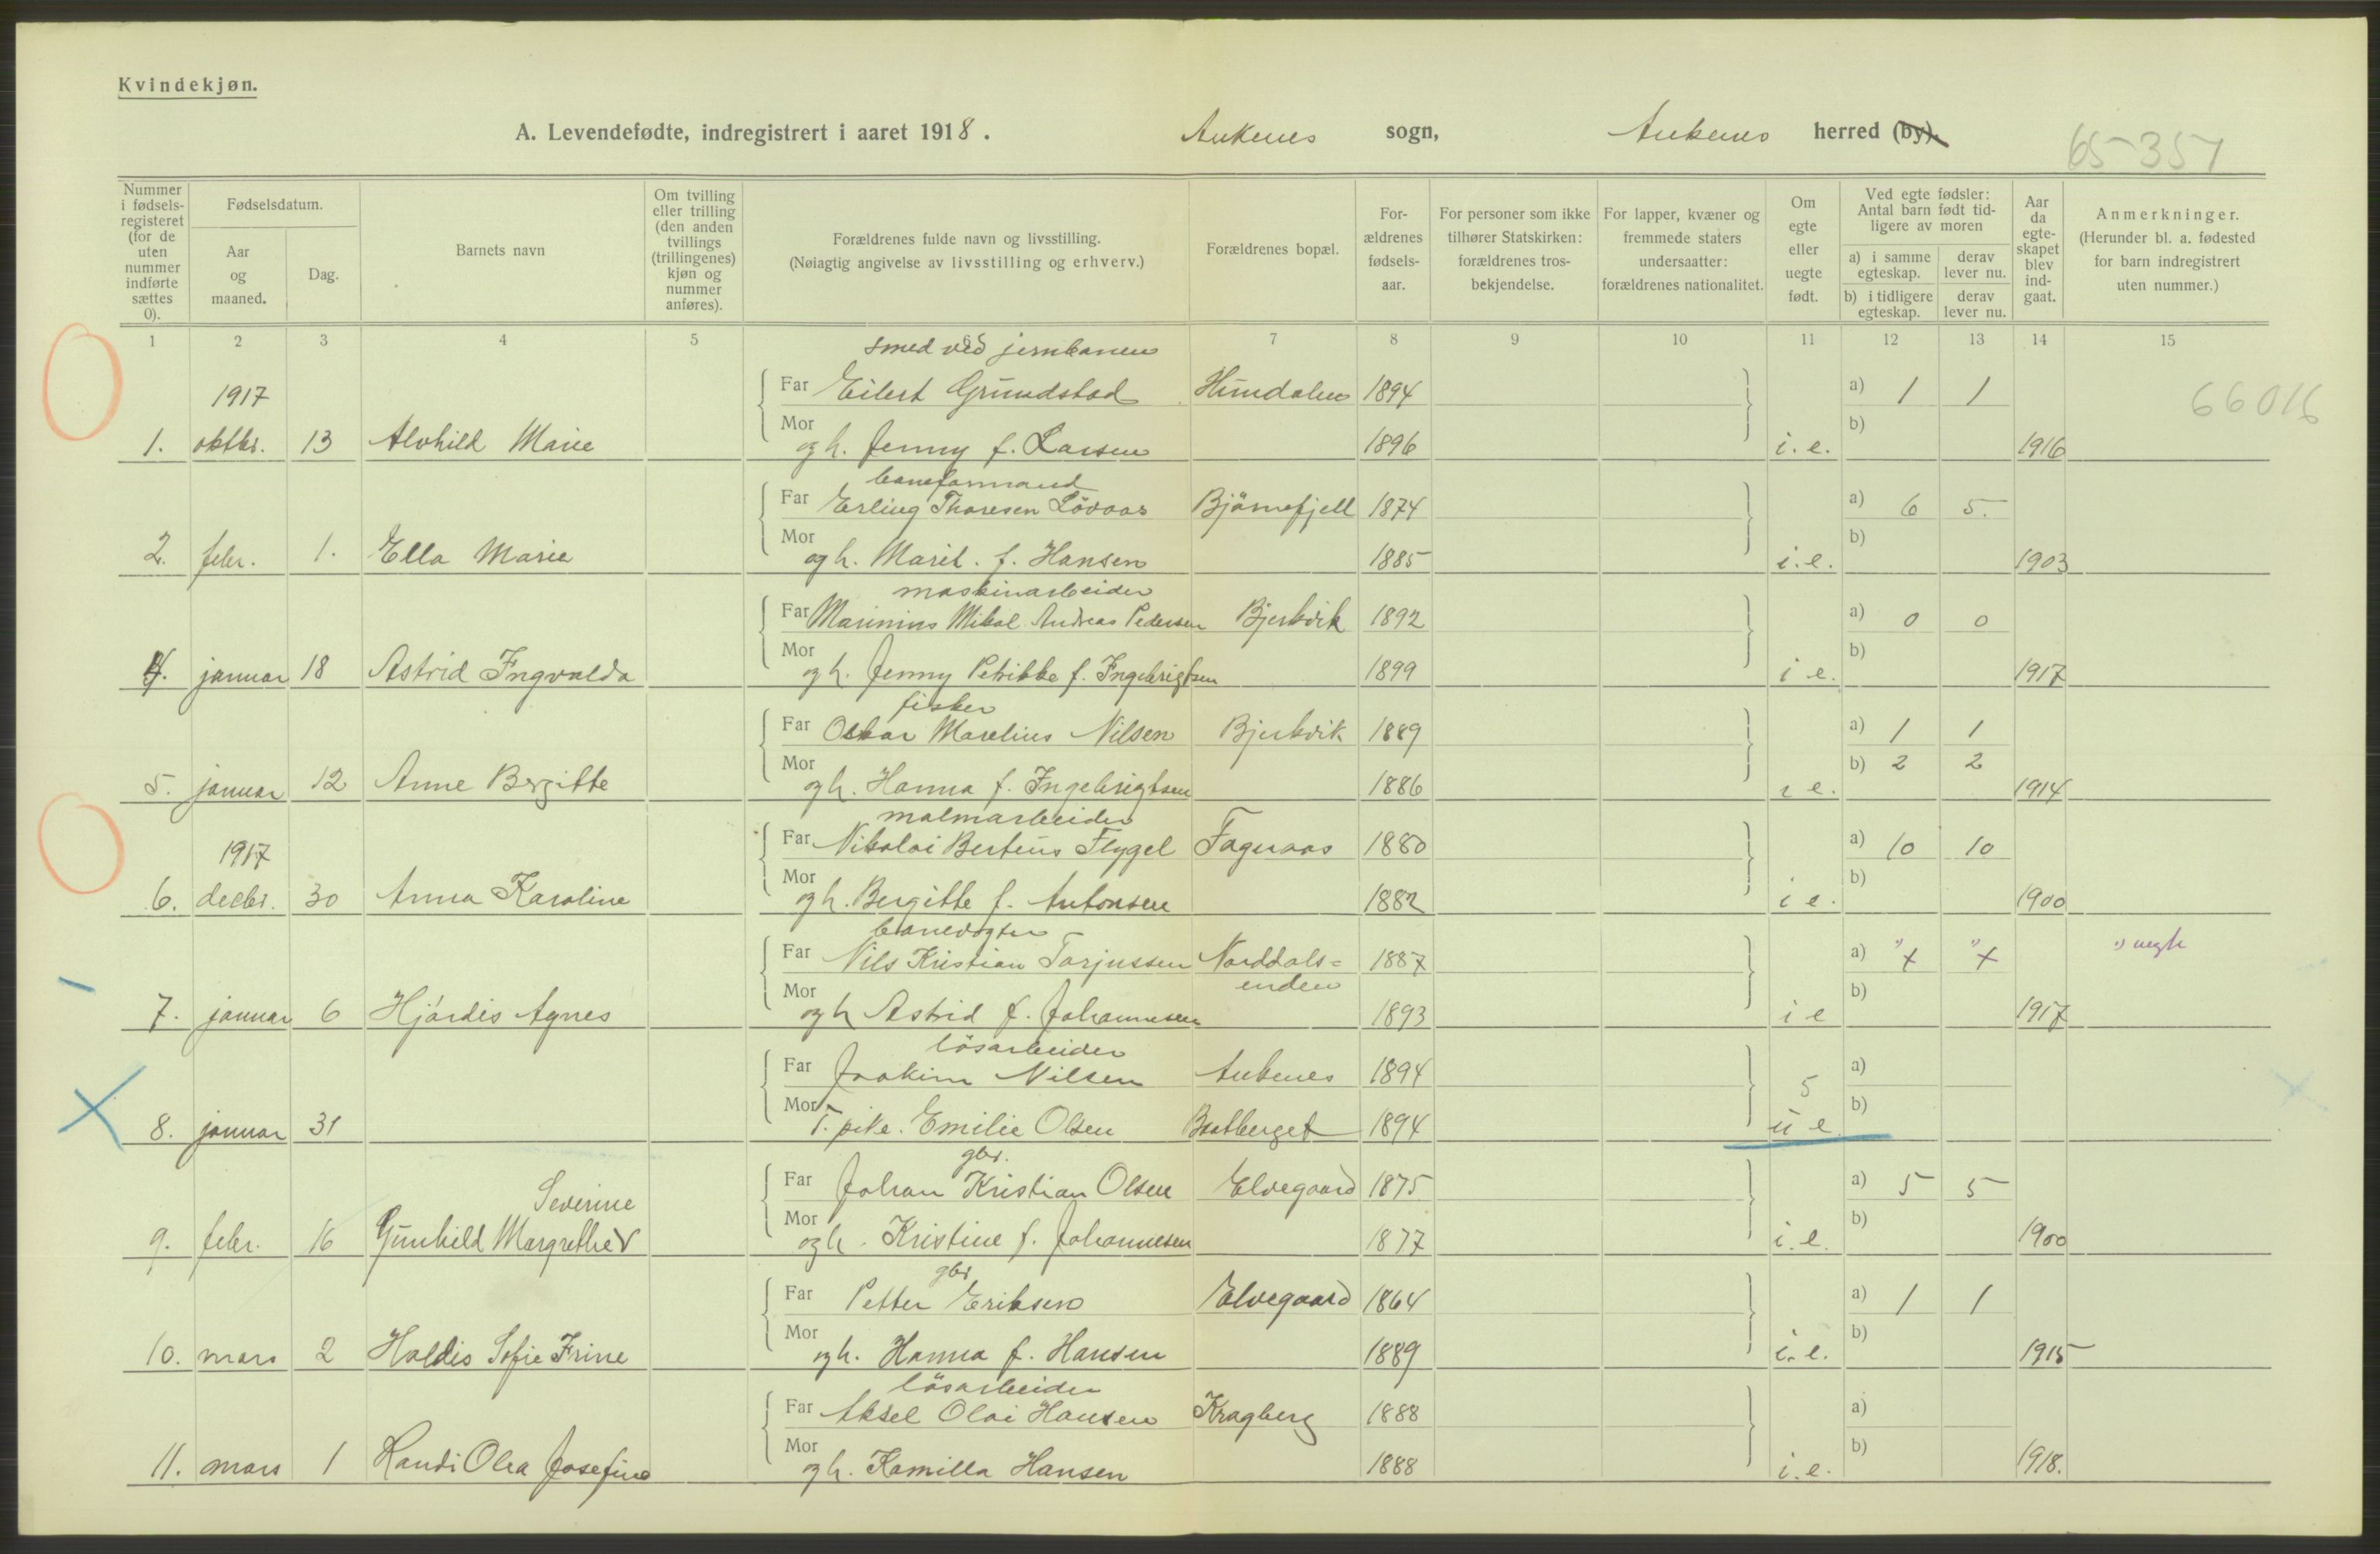 Kvindekjøn.
A. Levendefødte, indregistrert i aaret 1918. Ankenes sogn, Ankenes herred (by).
65-351
Nummer i fødselsregisteret (for de uten nummer indførte sættes 0).
Fødselsdatum.
Aar og maaned.
Dag.
Barnets navn
Om tvilling eller trilling (den anden tvillings (trillingenes) kjøn og nummer anføres).
Forældrenes fulde navn og livsstilling.
(Nøiagtig angivelse av livsstilling og erhverv.)
Forældrenes bopæl.
Forældrenes fødselsaar.
For personer som ikke tilhører Statskirken: forældrenes trosbekjendelse.
For lapper, kvæner og fremmede staters undersaatter: forældrenes nationalitet.
Om egte eller uegte født.
Ved egte fødsler: Antal barn født tidligere av moren
a) i samme egteskap. derav lever nu.
b) i tidligere egteskap. derav lever nu.
Aar da egteskapet blev indgaat.
Anmerkninger.
(Herunder bl. a. fødested for barn indregistrert uten nummer.)
1 2 3 4 5 6 7 8 9 10 11 12 13 14 15
smed ved jernbanen
1917 Far Eilert Grundstad Hundalen 1894 a) 1 1 66016
1. oktbr. 13 Alvhild Marie Mor og h. Jenny f. Larsen 1896 i. e. b) 1916
baneformand
Far Erling Thoresen Lövaas Björnefjell 1874 a) 6 5.
2. febr. 1. Ella Marie Mor og h. Marit. f. Hansen 1885 i. e. b) 1903
maskinarbeider
Far Marinius Mikal Andreas Pedersen Bjerkvik 1892 a) 0 0
4. januar 18 Astrid Ingvalda Mor og h. Jenny Petrikke f. Ingebrigtsen 1899 i e. b) 1917
fisker
Far Oskar Marelius Nilsen Bjerkvik 1889 a) 1 1
5. januar 12 Anne Bergitte Mor og h. Hanna f. Ingebrigtsen 1886 i e. b) 2 2 1914
malmarbeider
1917 Far Nikolai Berteus Flygel Fagernaas 1880 a) 10 10
6. decbr. 30 Anna Karoline Mor og h. Bergitte f. Antonsen 1882 i e. b) 1900
banevogter
Far Nils Kristian Torjussen Norddals= 1887 a) x x uegte
enden
7. januar 6 Hjördis Agnes Mor og h Astrid f. Johannesen 1893 i e b) 1917
lösarbeider
Far Joakim Nilsen Ankenes 1894 5 a)
8. januar 31 Mor T. pike. Emilie Olsen Bratberget 1894 u e b)
gbr.
Severine Far Johan Kristian Olsen Elvegaard 1875 a) 5 5
9. febr. 16 Gunhild Margrethe Mor og h. Kristine f. Johannesen 1877 i. e. b) 1900
gbr
Far Petter Eriksen Elvegaard 1864 a) 1 1
10. mars 2 Haldis Sofie Irine Mor og h. Hanna f. Hansen 1889 i. e. b) 1915
lösarbeider
Far Aksel Olai Hansen Kragberg 1888 a)
11. mars 1 Randi Olea Josefine Mor og h. Kamilla Hansen 1888 i. e. b) 1918.